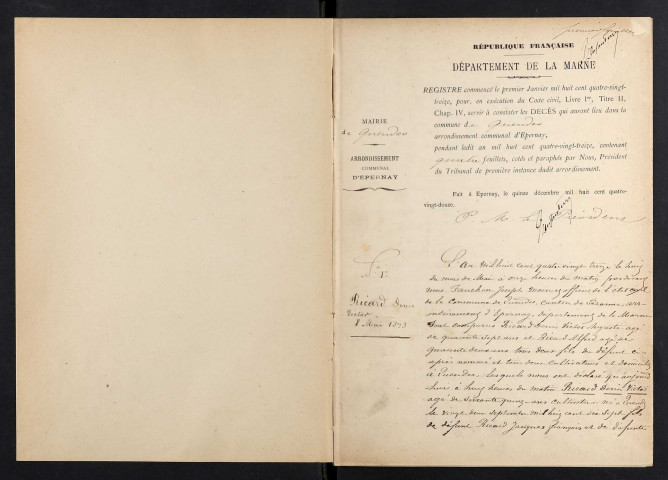 RÉPUBLIQUE FRANÇAISE
DÉPARTEMENT DE LA MARNE
REGISTRE commencé le premier Janvier mil huit cent quatre-vingt-
treize, pour, en exécution du Code civil, Livre Ier, Titre II,
Chap. IV, servir à constater les DÉCÈS qui auront lieu dans la
commune de Queudes
arrondissement communal d'Epernay,
pendant ledit an mil huit cent quatre-vingt-treize, contenant
feuillets, cotés et paraphés par Nous, Président
du Tribunal de première instance dudit arrondissement.
Fait à Epernay, le quinze décembre mil huit cent quatre-
vingt-douze.
MAIRIE
de Queudes
ARRONDISSEMENT
COMMUNAL
D'ÉPERNAY
Ricard Denis
Victor
8 Mai 1893
L'an mil huit cent quatre vingt treize le huit
du mois de Mai à onze heures du matin par devant
nous Joseph maire et officier de l'état civil
de la Commune de Queudes, canton de Sézanne, arr-
ondissement d'Epernay, département de la Marne
Sont comparus Ricard Denis Victor Auguste agé
de quarante sept ans et Ricard Alfred agé de
quarante deux ans tous deux fils de défunt ci-
après nommé et tous deux cultivateurs et domiciliés
à Queudes lesquels nous ont déclaré qu'aujourd
hui à huit heures du matin Ricard Denis Victor
agé de soixante quinze ans cultivateur né à Queudes
le vingt deux septembre mil huit cent dix sept fils
de défunt Ricard Jacques français et de défunte